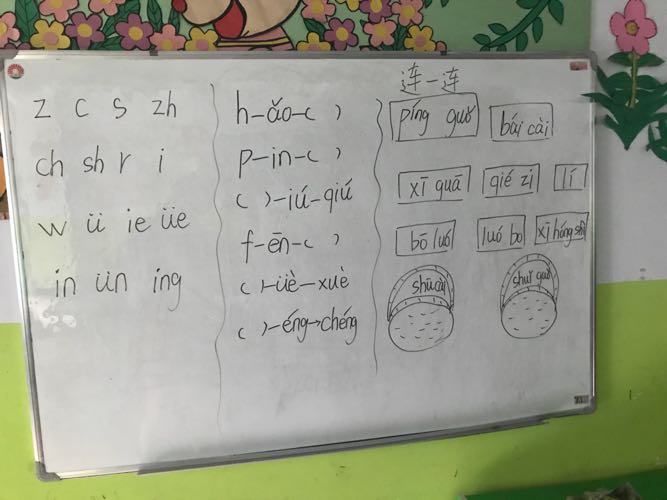 z c s zh
ch sh r i
w ü ie üe
in ün ing
h-ǎo-( )
p-in-( )
( )-iú-qiú
f-ēn-( )
( )-üè-xuè
( )-éng→chéng
连一连
píng guǒ bái cài
xī guā qié zi lí
bō luó luó bo xī hóng shì
shū cài shuǐ guǒ